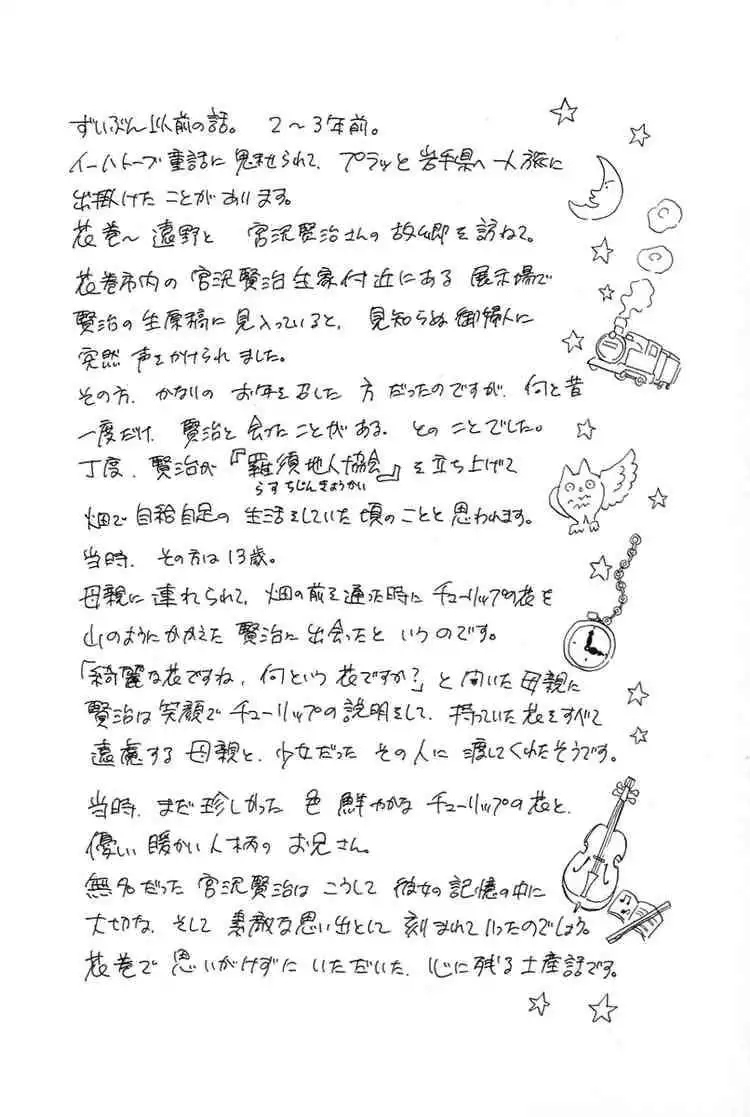 ずいぶん以前の話。 2〜3年前。
イーハトーブ童話に魅せられて、プラッと岩手県へ一人旅に
出掛けたことがあります。
花巻〜遠野と 宮沢賢治さんの故郷を訪ねて。
花巻市内の宮沢賢治生家付近にある展示場で
賢治の生原稿に見入っていると、見知らぬ御婦人に
突然声をかけられました。
その方、かなりのお年を召した方だったのですが、何と昔
一度だけ、賢治と会ったことがある、とのことでした。
丁度、賢治が『羅須地人協会』を立ち上げて
らすちじんきょうかい
畑で自給自足の生活をしていた頃のことと思われます。
当時、その方は13歳。
母親に連れられて、畑の前を通った時にチューリップの花を
山のようにかかえた賢治に出会ったというのです。
「綺麗な花ですね、何という花ですか?」と聞いた母親に
賢治は笑顔でチューリップの説明をして、持っていた花をすべて
遠慮する母親と、少女だったその人に渡してくれたそうです。
当時、まだ珍しかった色鮮やかなチューリップの花と、
優しい暖かい人柄のお兄さん。
無名だった宮沢賢治はこうして彼女の記憶の中に
大切な、そして素敵な思い出として刻まれていったのでしょう。
花巻で思いがけずにいただいた、心に残る土産話です。